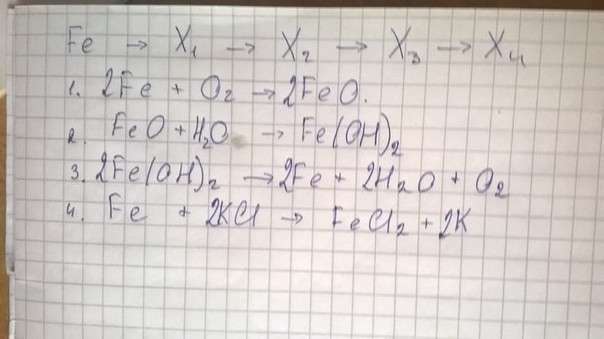 Fe → X₁ → X₂ → X₃ → X₄
1. 2Fe + O₂ → 2FeO.
2. FeO + H₂O → Fe(OH)₂
3. 2Fe(OH)₂ → 2Fe + 2H₂O + O₂
4. Fe + 2KCl → FeCl₂ + 2K